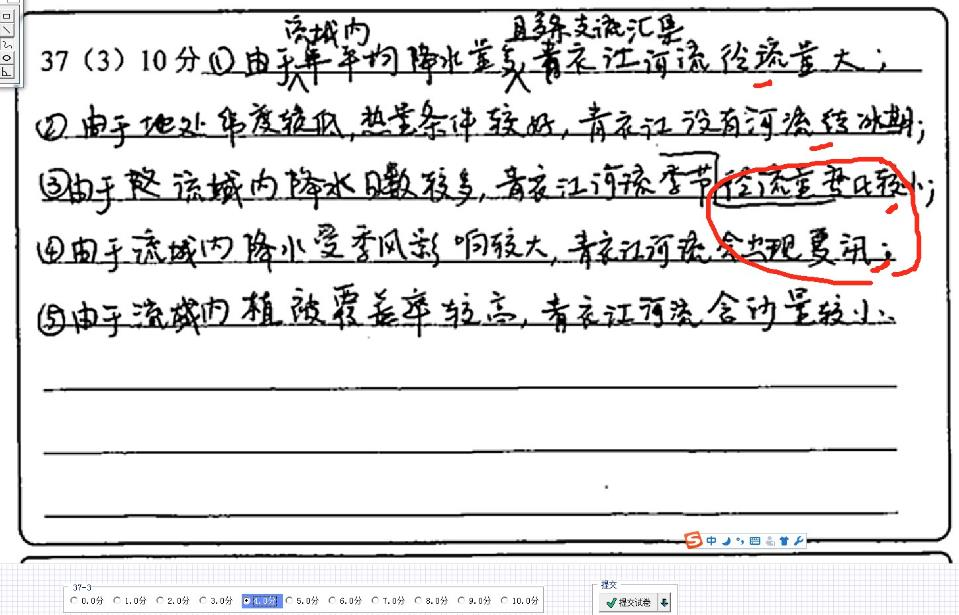 流域内 且多条支流汇集
37（3）10分 ①由于年平均降水量多，青衣江河流径流量大；
②由于地处纬度较低，热量条件较好，青衣江没有河流结冰期；
③由于 流域内降水日数较多，青衣江河流季节径流量变化较小；
④由于流域内降水受季风影响较大，青衣江河流会出现夏汛；
⑤由于流域内植被覆盖率较高，青衣江河流含沙量较小。
中
37-3
提交
0.0分 1.0分 2.0分 3.0分 4.0分 5.0分 6.0分 7.0分 8.0分 9.0分 10.0分
提交试卷